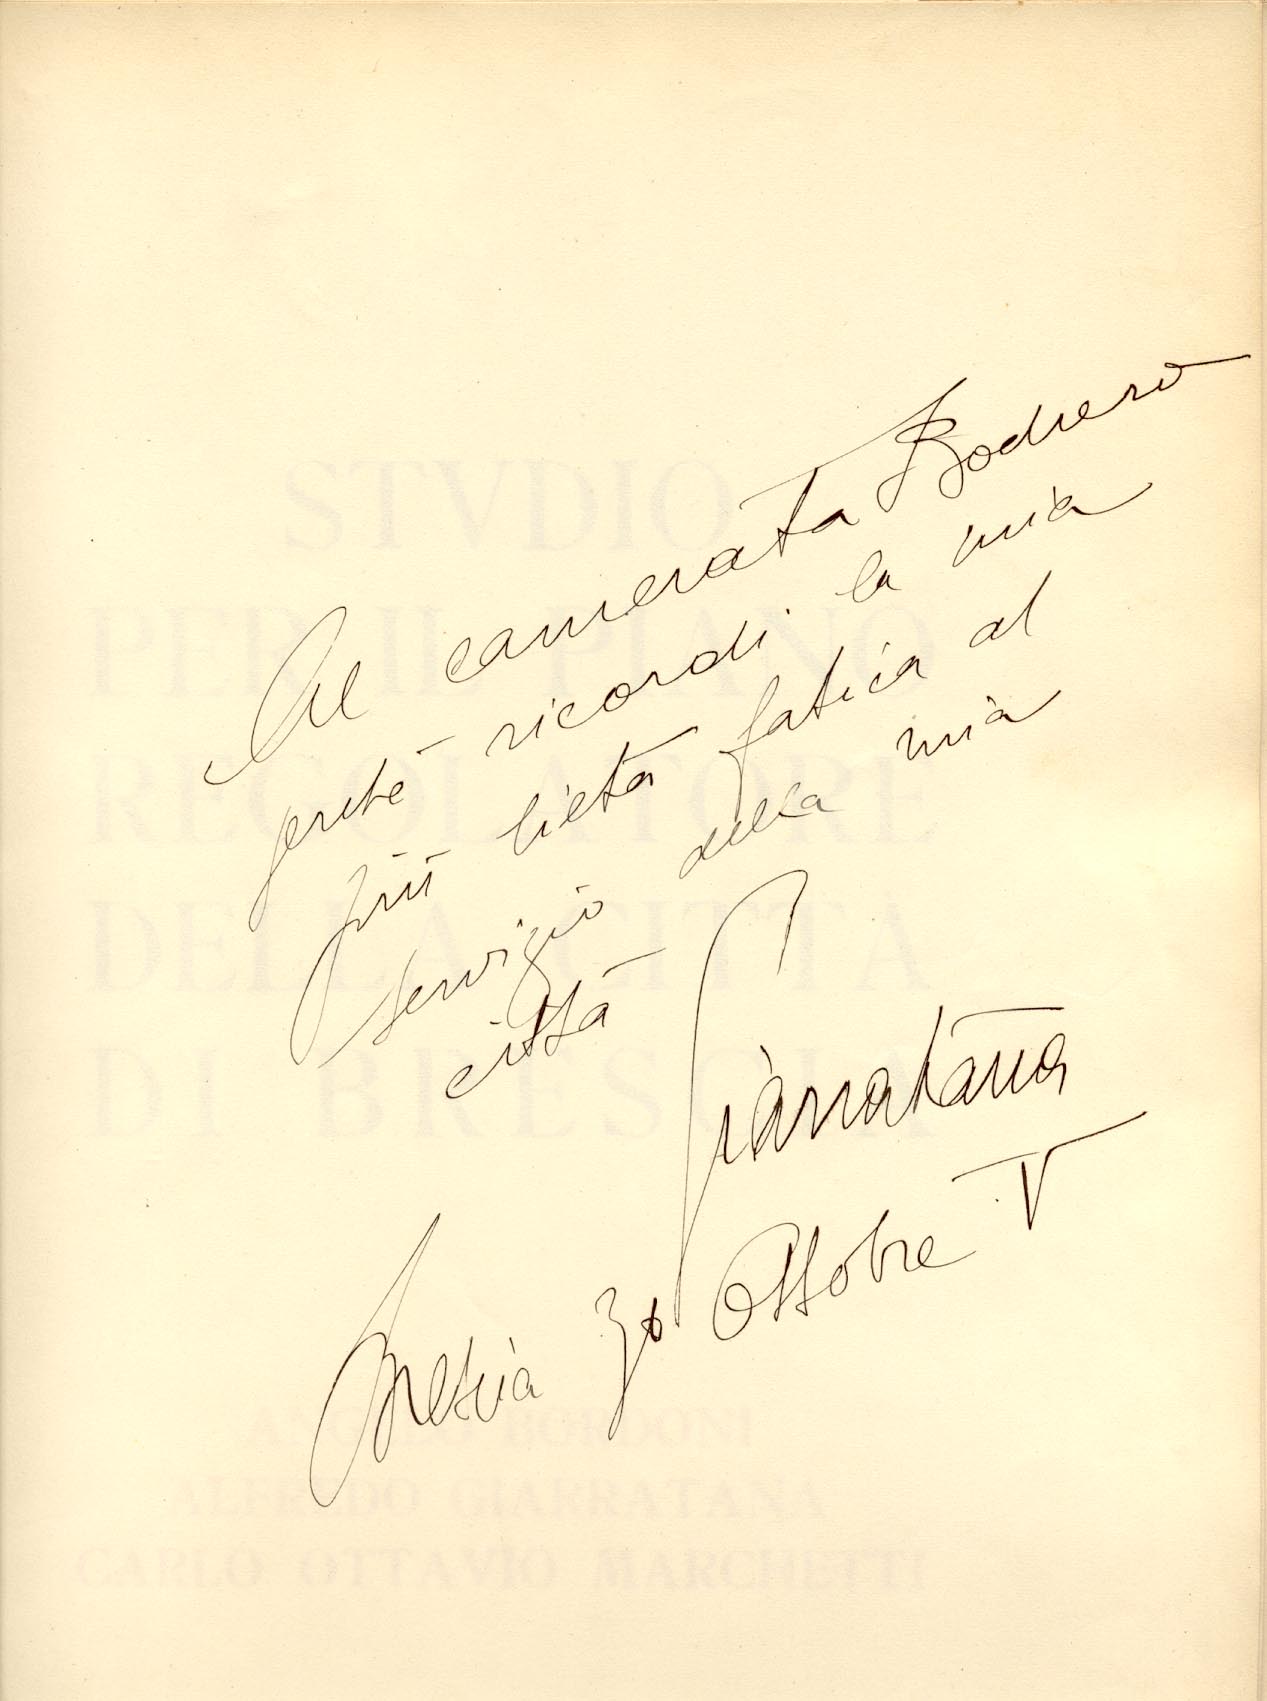 Al camerata Bodrero
perché ricordi la mia
più lieta fatica al
servizio della mia
città
Giarratana
Brescia 30 Ottobre V
STVDIO
PER IL PIANO
REGOLATORE
DELLA CITTA
DI BRESCIA
ANGELO BORDONI
ALFREDO GIARRATANA
CARLO OTTAVIO MARCHETTI